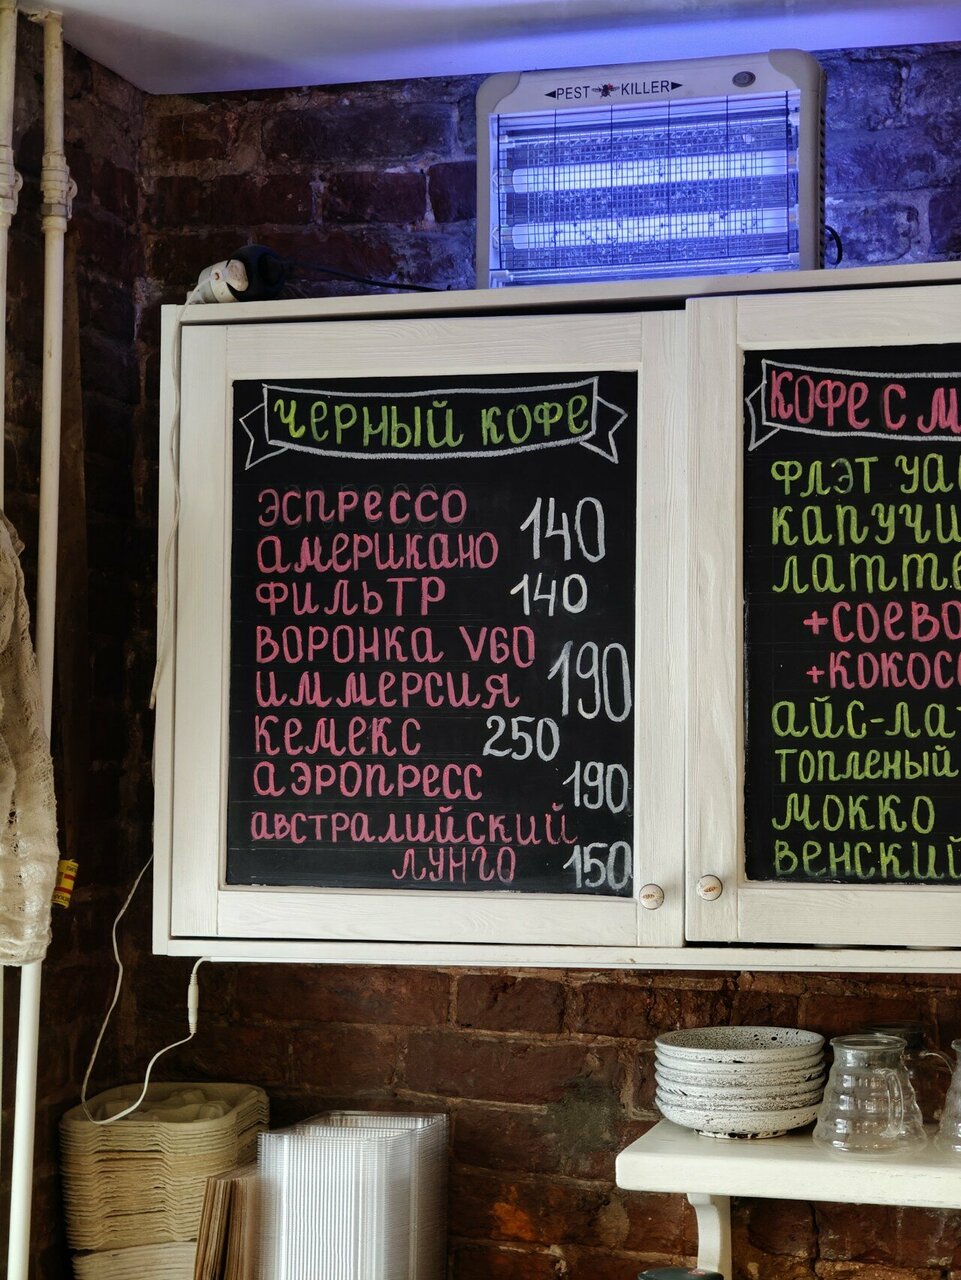 PEST KILLER
ЧЕРНЫЙ КОФЕ
ЭСПРЕССО
АМЕРИКАНО 140
ФИЛЬТР 140
ВОРОНКА V60
ИММЕРСИЯ 190
КЕМЕКС 250
АЭРОПРЕСС 190
АВСТРАЛИЙСКИЙ
ЛУНГО 150
КОФЕ С М
ФЛЭТ УА
КАПУЧИ
ЛАТТЕ
+СОЕВО
+КОКОС
АЙС-ЛА
ТОПЛЕНЫЙ
МОККО
ВЕНСКИЙ